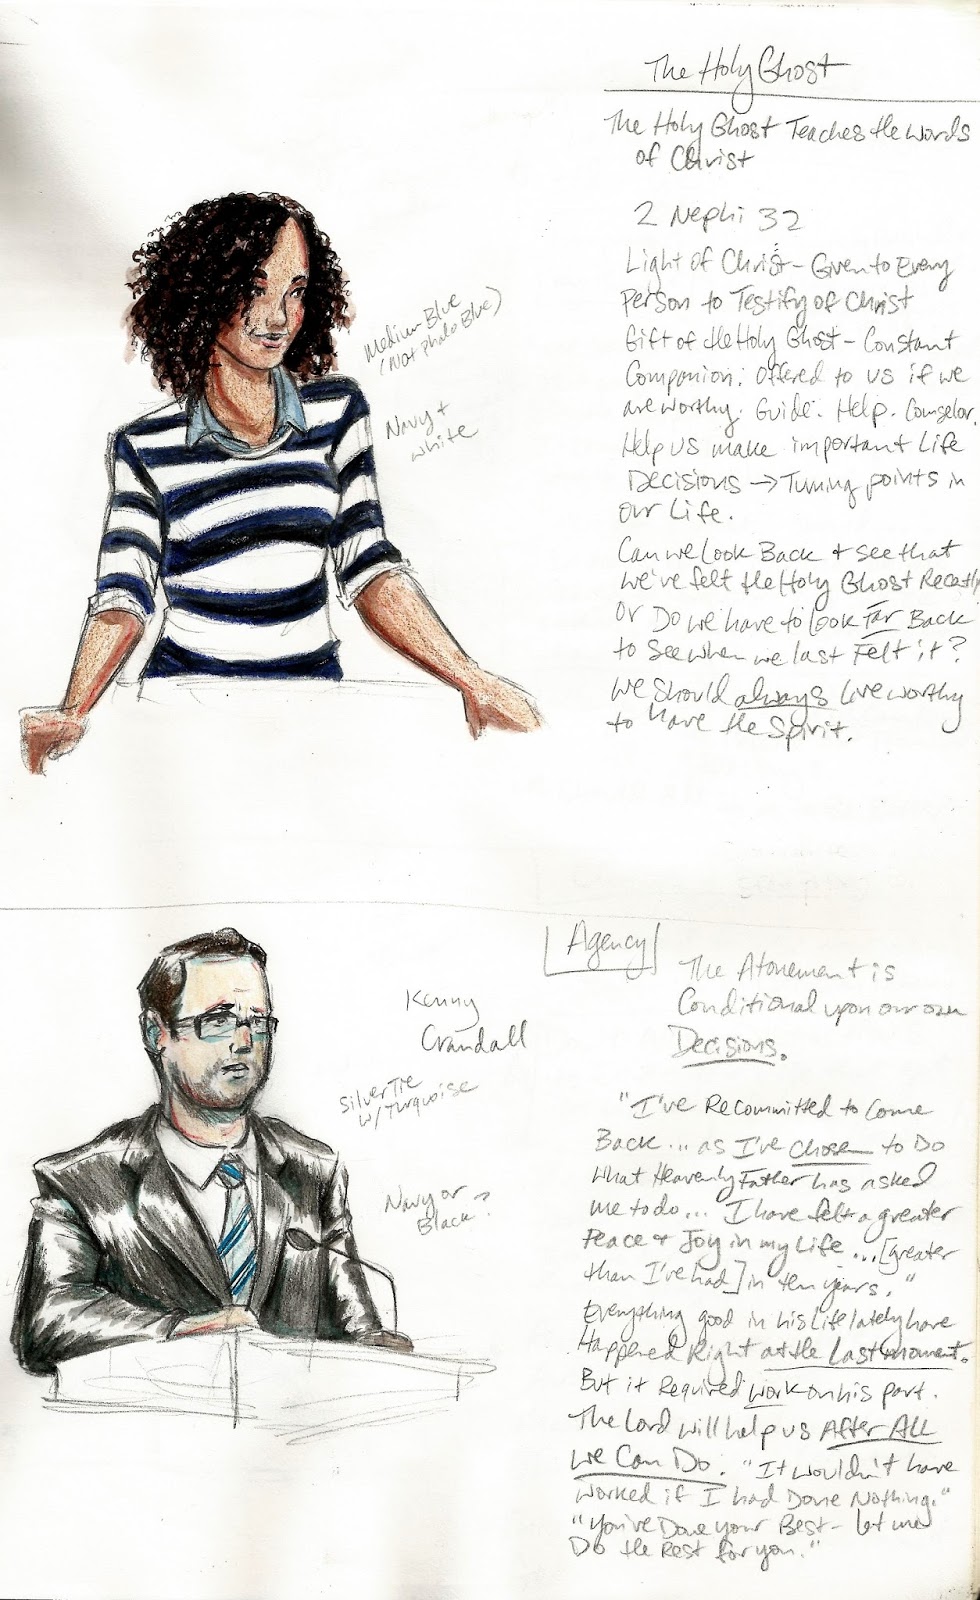 The Holy Ghost
The Holy Ghost Teaches the words
of Christ
2 Nephi 32
Light of Christ - Given to Every
Person to Testify of Christ
Gift of the Holy Ghost - Constant
Companion: offered to us if we
are worthy. Guide. Help. Counselor.
Help us make important Life
Decisions → Turning points in
our Life.
Can we Look Back + see that
we've felt the Holy Ghost Recently
or Do we have to look Far Back
to see when we last Felt it?
We should always live worthy
to have the Spirit.
Medium Blue
(Not phalo Blue)
Navy +
white
Agency
The Atonement is
Conditional upon our own
Decisions.
Kenny
Crandall
Silver Tie
w/ Turquoise
Navy or
Black?
"I've Recommitted to Come
Back... as I've chosen to Do
what Heavenly Father has asked
me to do... I have felt a greater
Peace + Joy in my Life ...[greater
than I've had] in ten years."
Everything good in his life lately have
Happened Right at the Last moment.
But it Required work on his part.
The Lord will help us After All
we Can Do. "It wouldn't have
worked if I had Done Nothing."
"You've Done your Best - let me
Do the Rest for you."